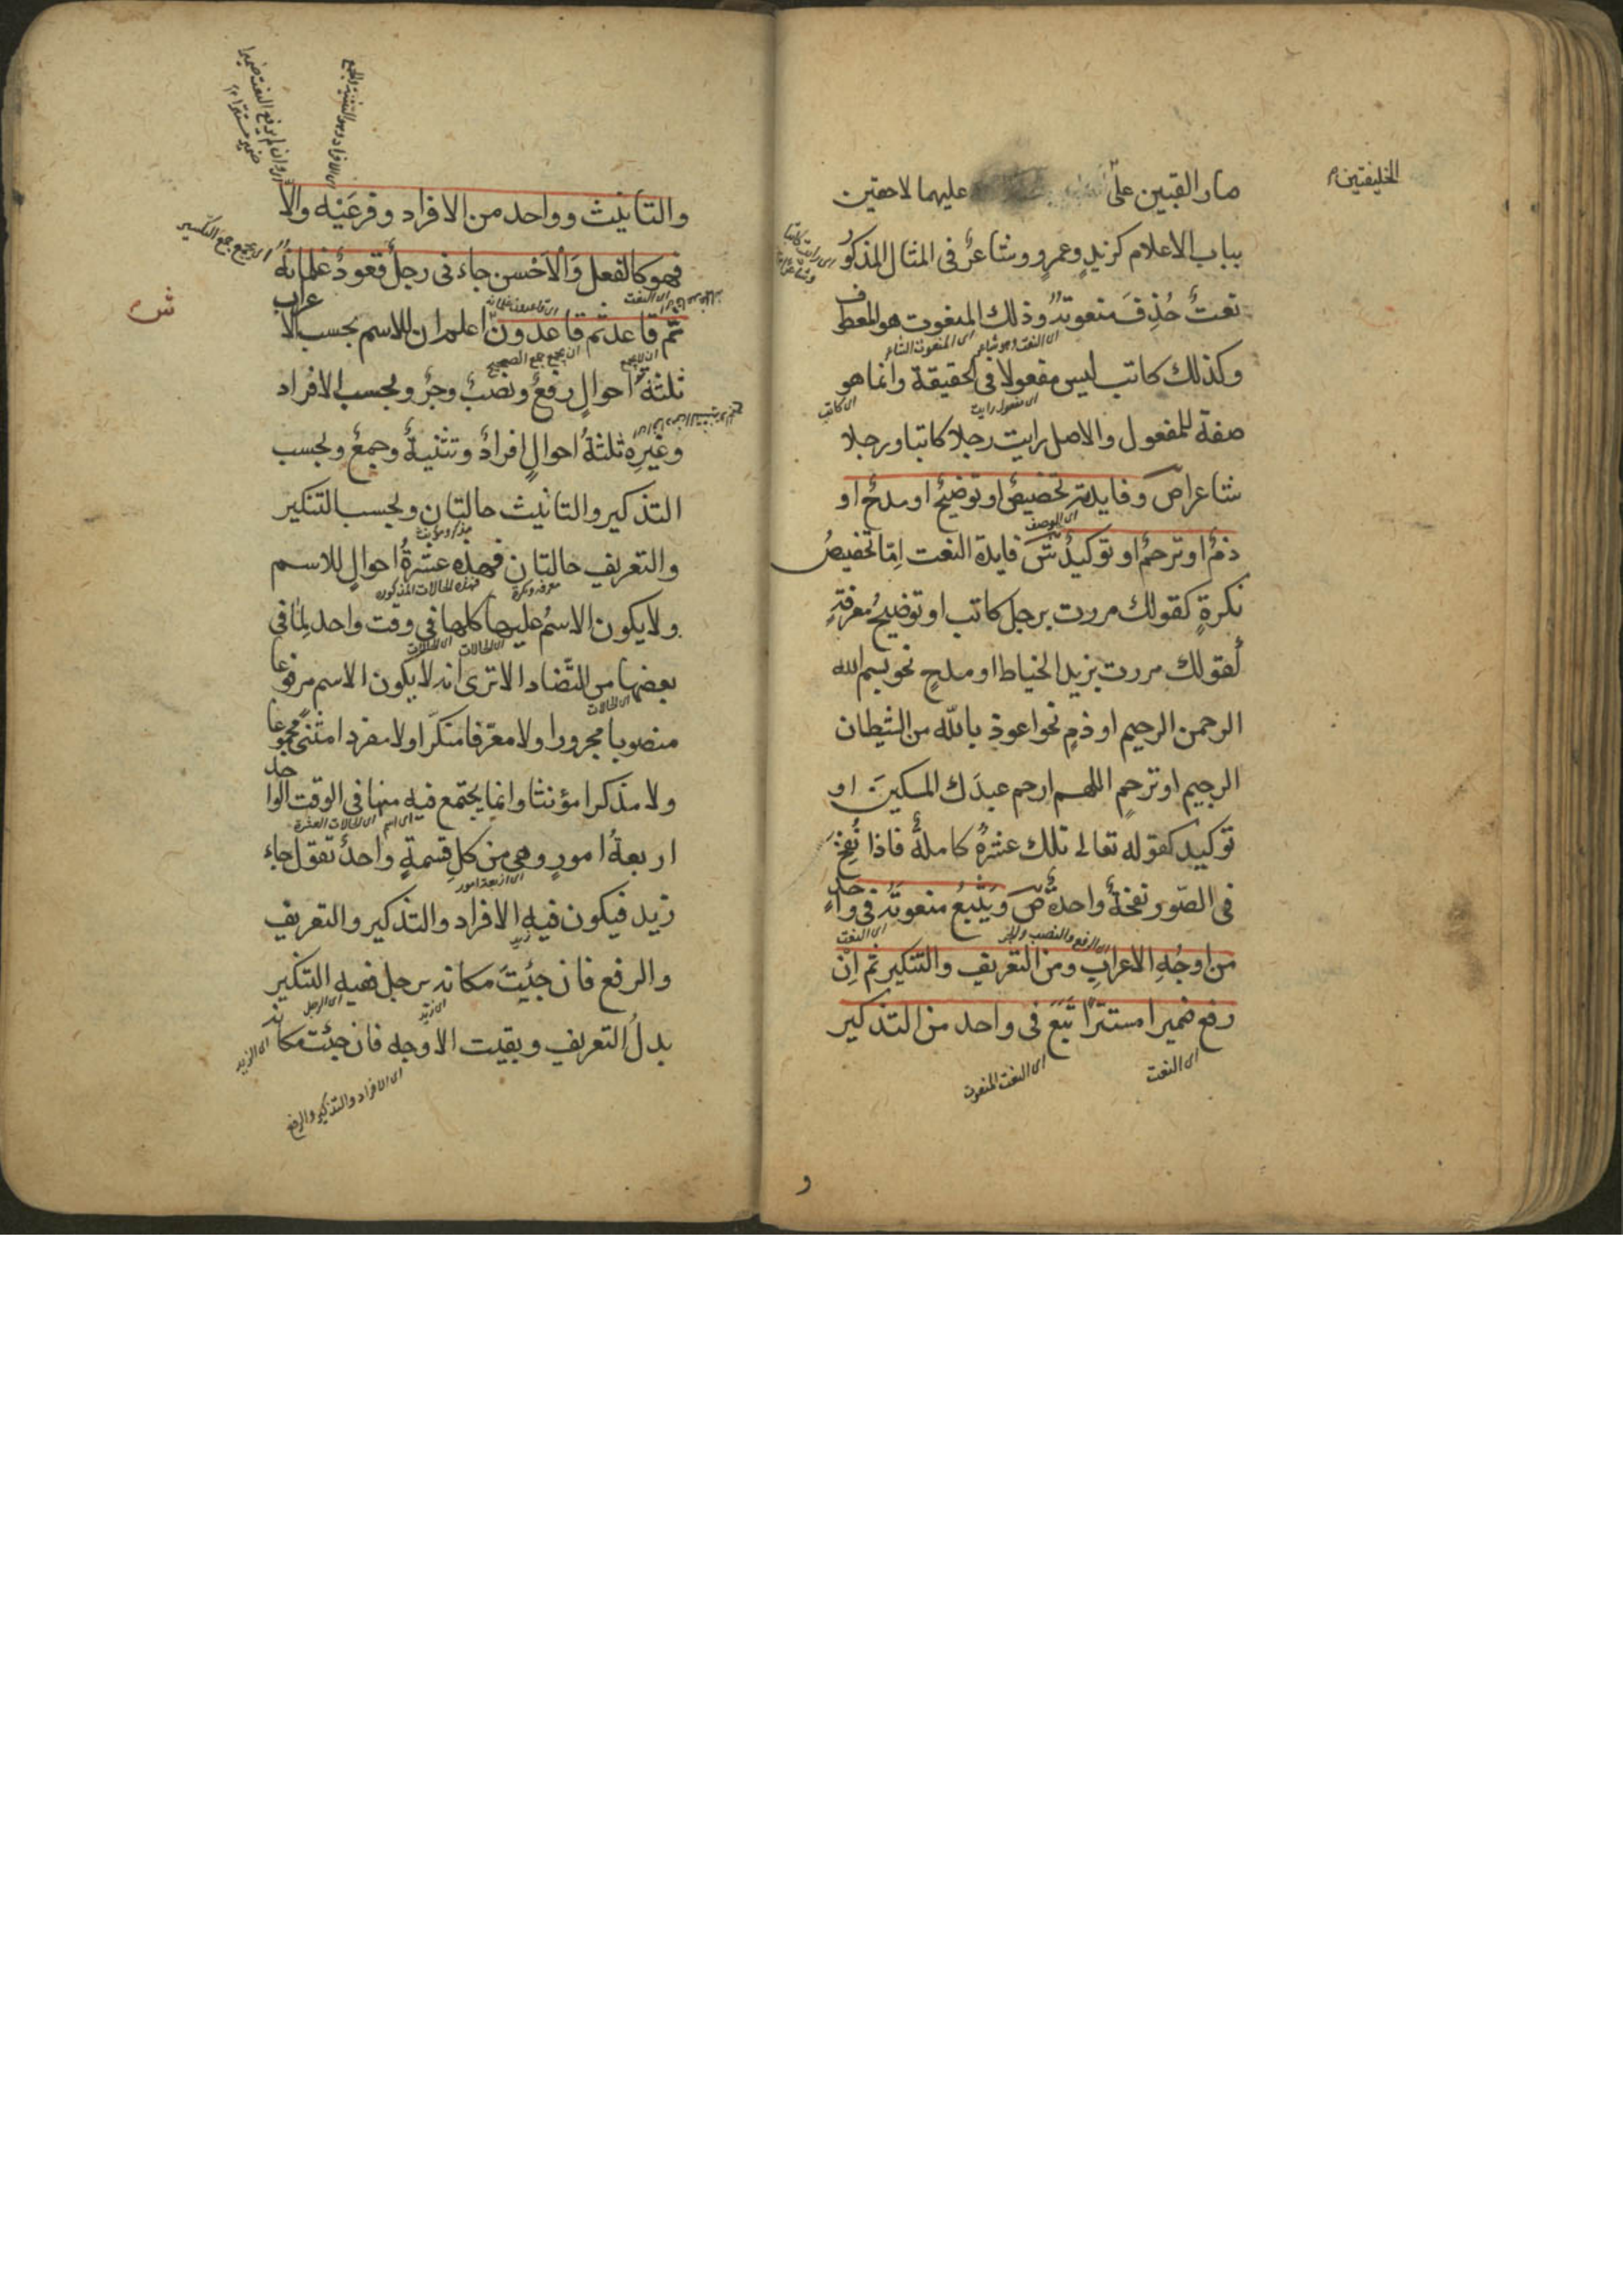 صارا لقبين على عليهما لاحقين
الخليفتين
بباب الاعلام كزيد وعمرو وشاعرٌ فى المثال المذكور
نعتٌ حُذِفَ منعوتُه وذلك المنعوت هو المعطوف
اى النعت وهو شاعر
وكذلك كاتب ليس مفعولا فى الحقيقة وانما هو
اى مفعول رايت
اى كاتب
صفة للمفعول والاصل رايت رجلا كاتبا ورجلا
شاعرا ص وفايدته تخصيصٌ او توضيحٌ او مدحٌ او
ذمٌ او ترحمٌ او توكيدٌ ش فايدة النعت اِمّا تخصيصُ
نكرةٍ كقولك مررت برجل كاتب او توضيحُ معرفةٍ
كقولك مررت بزيد الخياط او مدحٍ نحو بسم الله
الرحمن الرحيم او ذمٍ نحو اعوذ بالله من الشيطان
الرجيم او ترحمٍ اللهم ارحم عبدَك المسكينَ او
توكيد كقوله تعالى تلك عشرةٌ كاملةٌ فاذا نُفِخَ
فى الصّور نفخةٌ واحدةٌ ص ويَتْبَعُ منعوتَه فى واحدٍ
اى النعت
من اوجُهِ الاعرابِ ومن التعريف والتنكير ثم اِنْ
اى الرفع والنصب والجر
رفع ضميرا مستترًا تَبِعَ فى واحد من التذكير
اى النعت
اى النعت المنعوت
والتانيث وواحد من الافراد وفرعَيْه والاّ
فهو كالفعل وَالْاَحْسن جاءنى رجلٌ قعودٌ غلمانُه
ثم قاعد ثم قاعدون ش اعلم ان للاسم بحسب الاعراب
ثلثةُ احوالٍ رفعٌ ونصبٌ وجرٌ وبحسب الافراد
وغيرِه ثلثةُ احوالٍ افرادٌ وتثنيةٌ وجمعٌ وبحسب
التذكير والتانيث حالتان وبحسب التنكير
والتعريف حالتان فهذه عشرةُ احوالٍ للاسم
معرفه ونكرة
فهذه الحالات المذكوره
ولا يكون الاسمُ عليها كلها فى وقت واحد لِمَا فى
اى الحالات
بعضها من التَّضاد الا ترى انه لا يكون الاسم مرفوعا
اى الحالات
منصوبا مجرورا ولا معرّفا منكّرا ولا مفردا مثنىً مجموعا
ولا مذكرا مؤنثا وانما يجتمع فيه منها فى الوقت الواحد
اى اسم
اى الحالات العشرة
اربعةُ امورٍ وهى من كلِ قسمةٍ واحدٌ تقول جاء
اى اربعة امور
زيد فيكون فيه الافراد والتذكير والتعريف
زيد
والرفع فان جئتَ مكانه برجل ففيه التنكير
اى زيد
اى الرجل
بدلُ التعريف وبقيت الاوجه فان جئت مكانه
اى الزيد
اى الافراد والتذكير والرفع
ش
و